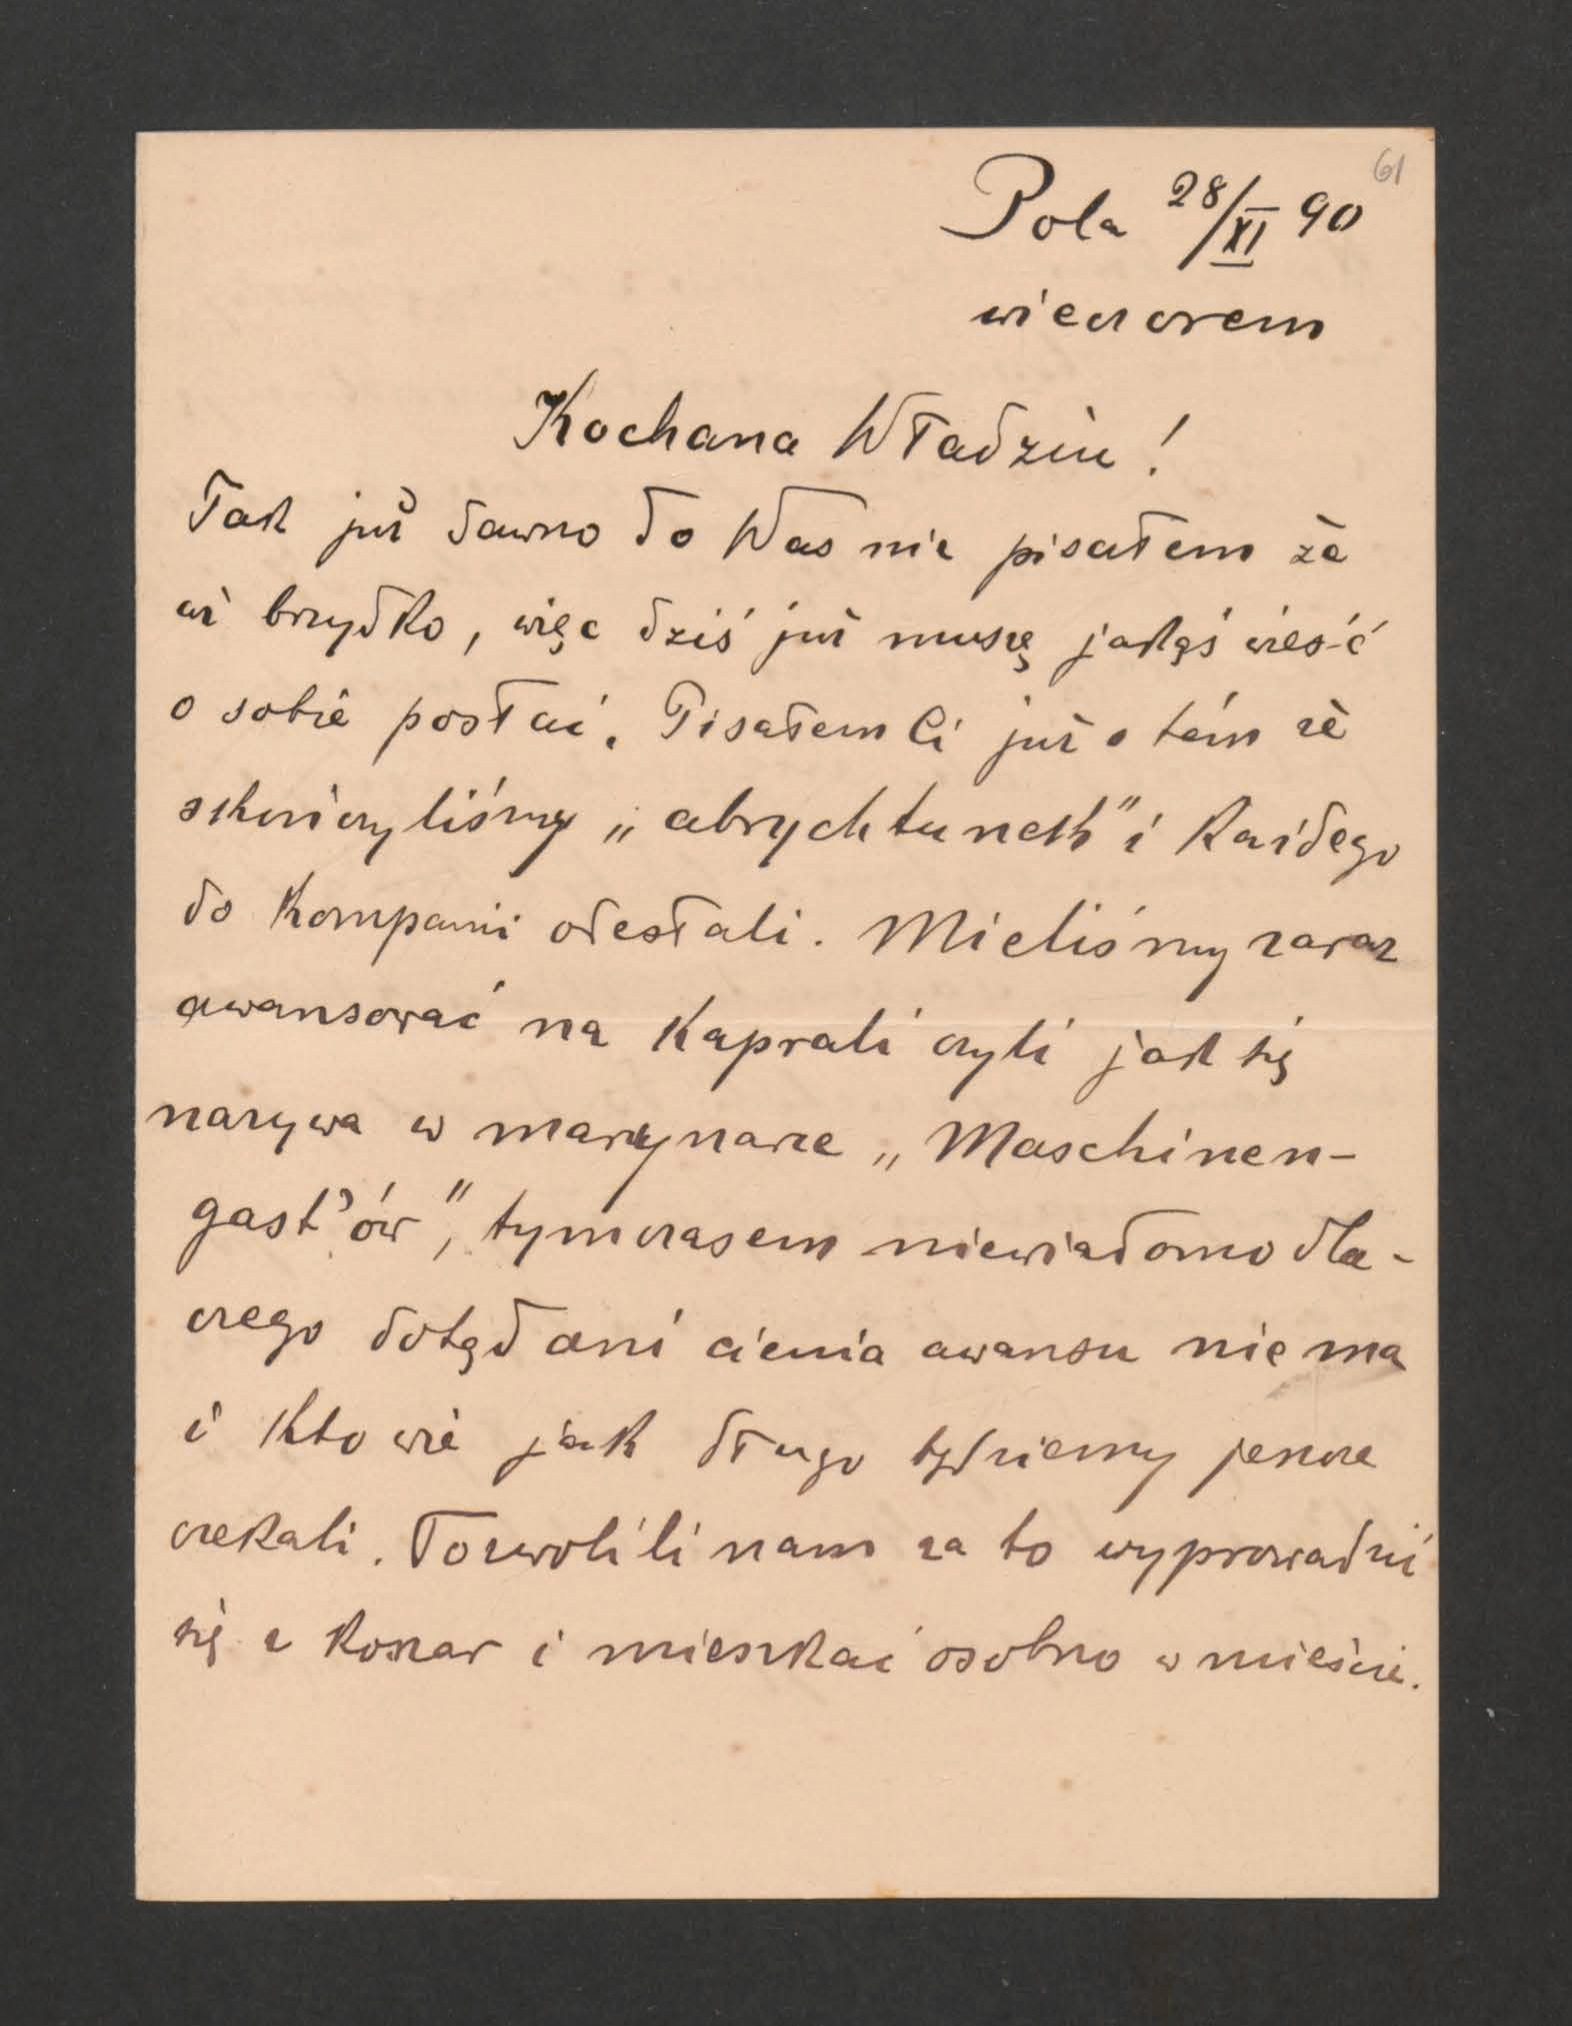 61
Pola 28/XI 90
wieczorem
Kochana Władziu!
Tak już dawno do Was nie pisałem że
aż brzydko, więc dziś już muszę jakąś wieść
o sobie posłać. Pisałem Ci już o tém że
skończyliśmy „abrychtunek" i każdego
do kompanii odesłali. Mieliśmy zaraz
awansować na kaprali czyli jak się
nazywa w marynarce „Maschinen-
gast'ów", tymczasem niewiadomo dla-
czego dotąd ani cienia awansu nie ma
i kto wie jak długo będziemy jeszcze
czekali. Pozwolili nam za to wyprowadzić
się z koszar i mieszkać osobno w mieście.